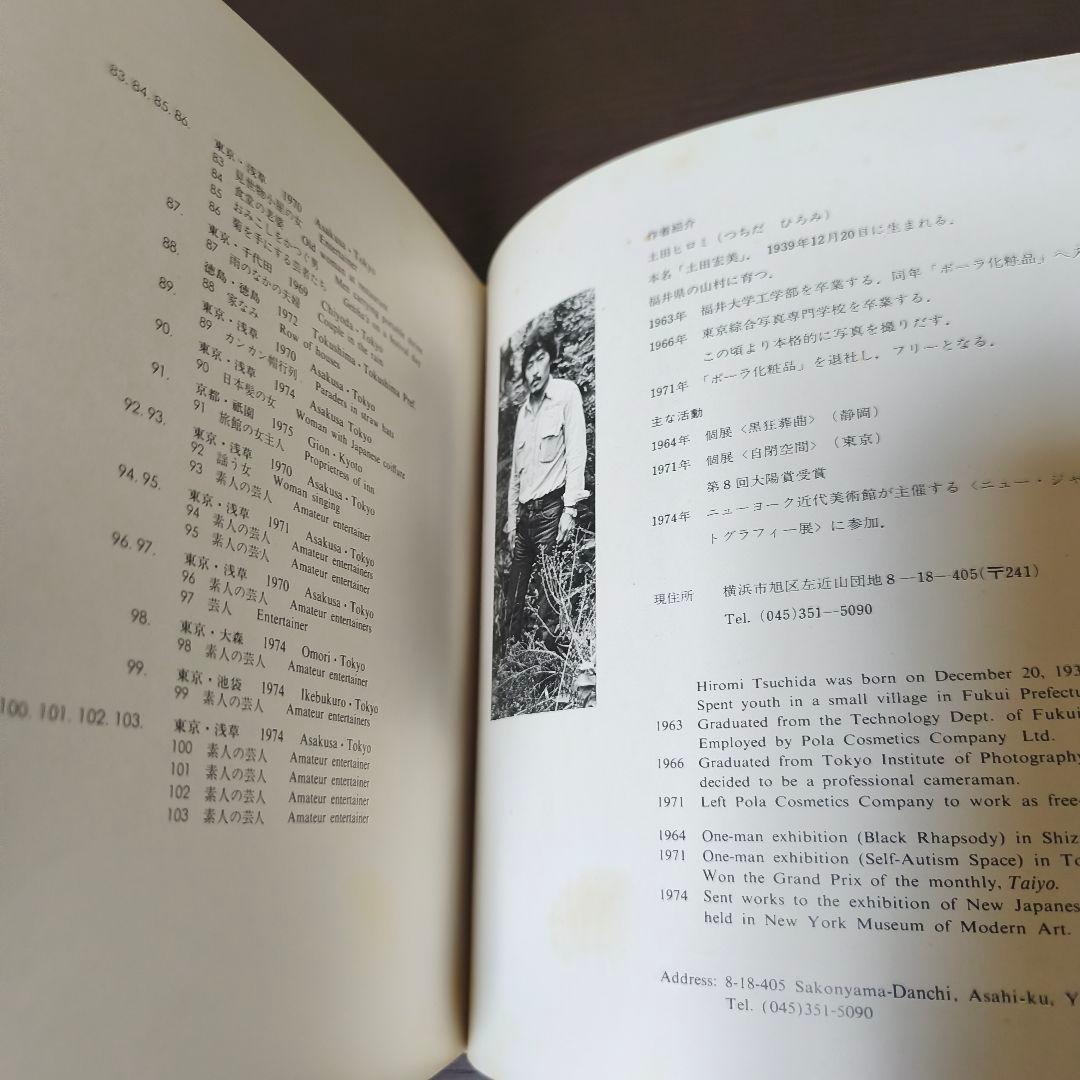 83. 84. 85. 86.
東京・浅草 1970 Asakusa・Tokyo
83 見世物小屋の女 Entertainer
84 食堂の老婆 Old woman at restaurant
85 おみこしをかつぐ男 Men carrying portable
86 菊を手にする芸者たち Geisha's on a festival day
87.
東京・千代田 1969 Chiyoda・Tokyo
87 雨のなかの夫婦 Couple in the rain
88.
徳島・徳島 1972 Tokushima・Tokushima Pref.
88 家なみ Row of houses
89.
東京・浅草 1970 Asakusa・Tokyo
89 カンカン帽行列 Paraders in straw hats
90.
東京・浅草 1974 Asakusa Tokyo
90 日本髪の女 Woman with Japanese coiffure
91.
京都・祇園 1975 Gion・Kyoto
91 旅館の女主人 Proprietress of inn
92. 93.
東京・浅草 1970 Asakusa・Tokyo
92 謡う女 Woman singing
93 素人の芸人 Amateur entertainer
94. 95.
東京・浅草 1971 Asakusa・Tokyo
94 素人の芸人 Amateur entertainers
95 素人の芸人 Amateur entertainer
96. 97.
東京・浅草 1970 Asakusa・Tokyo
96 素人の芸人 Amateur entertainers
97 芸人 Entertainer
98.
東京・大森 1974 Omori・Tokyo
98 素人の芸人 Amateur entertainer
99.
東京・池袋 1974 Ikebukuro・Tokyo
99 素人の芸人 Amateur entertainers
100. 101. 102. 103.
東京・浅草 1974 Asakusa・Tokyo
100 素人の芸人 Amateur entertainer
101 素人の芸人 Amateur entertainer
102 素人の芸人 Amateur entertainer
103 素人の芸人 Amateur entertainer
作者紹介
土田ヒロミ（つちだ ひろみ）
本名「土田宏美」. 1939年12月20日に生まれる.
福井県の山村に育つ.
1963年 福井大学工学部を卒業する. 同年「ポーラ化粧品」へ
1966年 東京綜合写真専門学校を卒業する.
この頃より本格的に写真を撮りだす.
1971年 「ポーラ化粧品」を退社し. フリーとなる.
主な活動
1964年 個展〈黒狂葬曲〉（静岡）
1971年 個展〈自閉空間〉（東京）
第8回太陽賞受賞
1974年 ニューヨーク近代美術館が主催する〈ニュー・ジャ
トグラフィー展〉に参加.
現住所 横浜市旭区左近山団地8―18―405(〒241)
Tel. (045)351--5090
Hiromi Tsuchida was born on December 20, 193
Spent youth in a small village in Fukui Prefectu
1963 Graduated from the Technology Dept. of Fukui
Employed by Pola Cosmetics Company Ltd.
1966 Graduated from Tokyo Institute of Photography
decided to be a professional cameraman.
1971 Left Pola Cosmetics Company to work as free-
1964 One-man exhibition (Black Rhapsody) in Shiz
1971 One-man exhibition (Self-Autism Space) in To
Won the Grand Prix of the monthly, Taiyo.
1974 Sent works to the exhibition of New Japanes
held in New York Museum of Modern Art.
Address: 8-18-405 Sakonyama-Danchi, Asahi-ku, Y
Tel. (045)351-5090